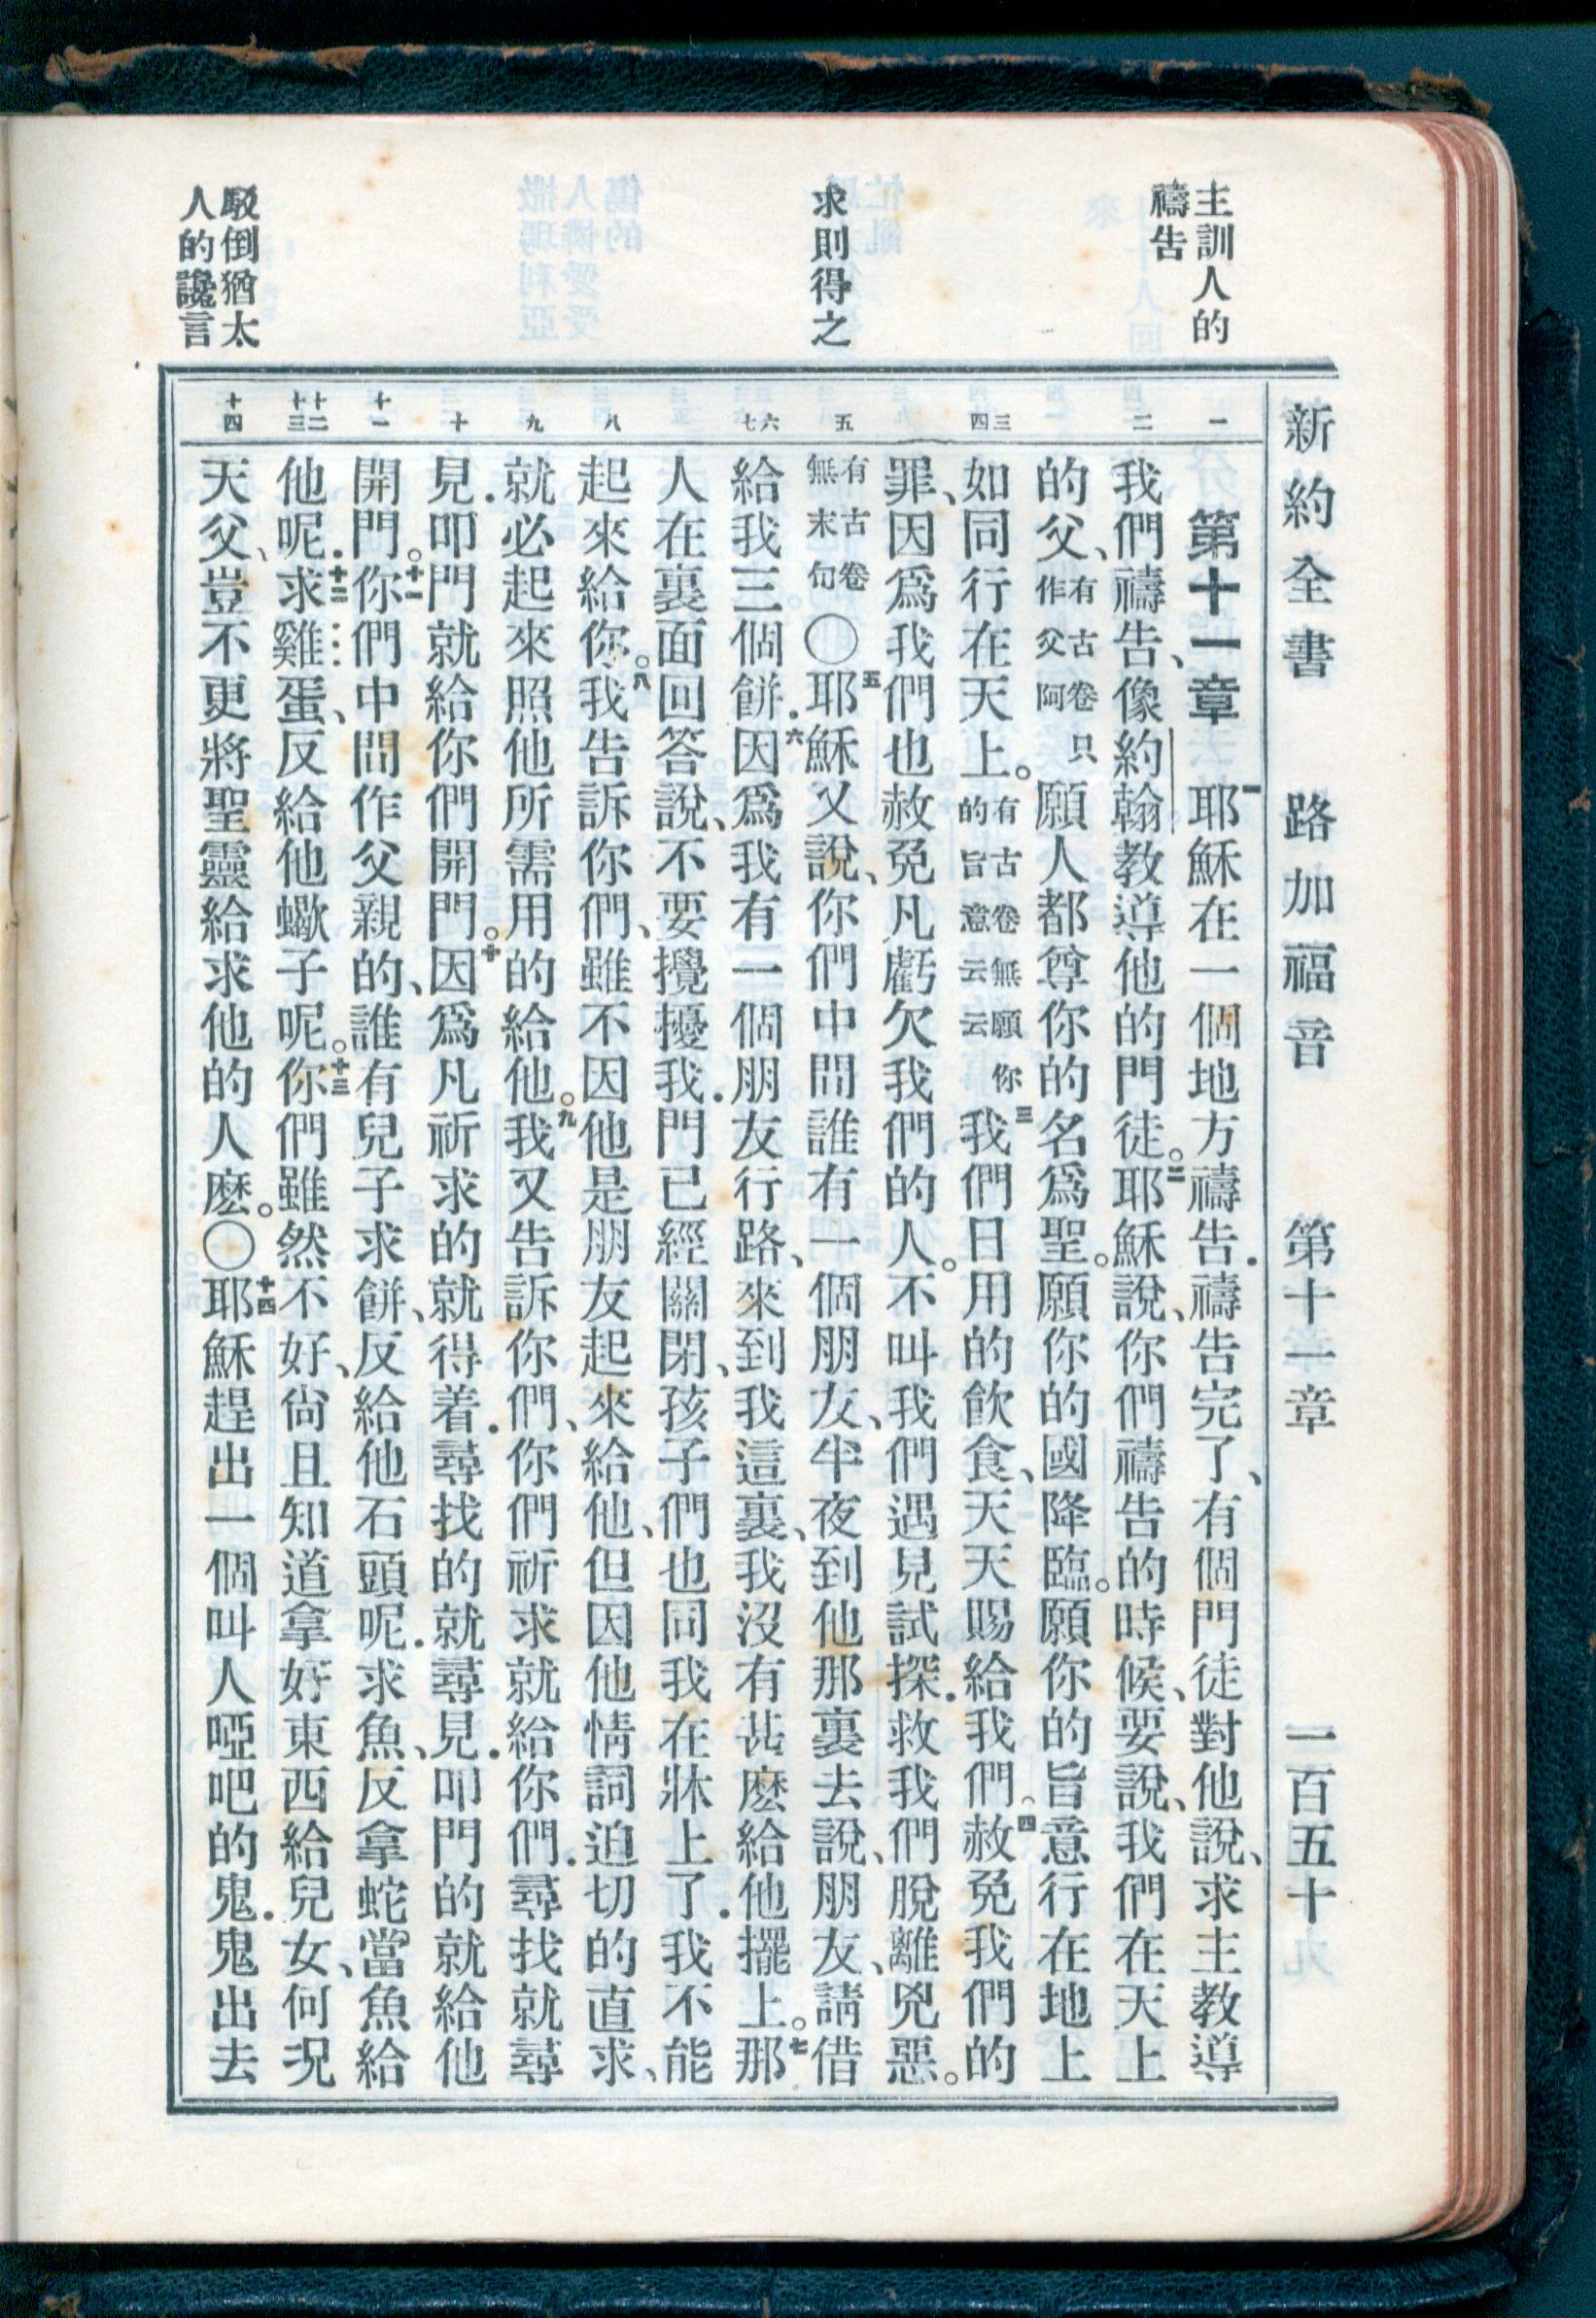 新約全書 路加福音 第十一章 一百五十
主訓人的
禱告
求則得之
駁倒猶太
人的讒言
一
二
三
四
五
六
七
八
九
十
十一
十二
十三
十四
第十一章 一耶穌在一個地方禱告．禱告完了、有個門徒對他說、求主教導
我們禱告、像約翰教導他的門徒。二耶穌說、你們禱告的時候、要說、我們在天上
的父、有古卷只作父阿願人都尊你的名爲聖。願你的國降臨。願你的旨意行在地上
如同行在天上。有古卷無願你的旨意云云三我們日用的飲食、天天賜給我們。四赦免我們的
罪、因爲我們也赦免凡虧欠我們的人。不叫我們遇見試探．救我們脫離兇惡。
有古卷無末句〇五耶穌又說、你們中間誰有一個朋友、半夜到他那裏去說、朋友、請借
給我三個餅．六因爲我有一個朋友行路、來到我這裏、我沒有甚麽給他擺上。七那
人在裏面回答說、不要攪擾我．門已經關閉、孩子們也同我在牀上了．我不能
起來給你。八我告訴你們、雖不因他是朋友起來給他、但因他情詞迫切的直求、
就必起來照他所需用的給他。九我又告訴你們、你們祈求就給你們．尋找就尋
見．叩門就給你們開門。十因爲凡祈求的就得着．尋找的就尋見．叩門的就給他
開門。十一你們中間作父親的、誰有兒子求餅、反給他石頭呢．求魚、反拿蛇當魚給
他呢．十二求雞蛋、反給他蠍子呢。十三你們雖然不好、尙且知道拿好東西給兒女、何況
天父、豈不更將聖靈給求他的人麽。〇十四耶穌趕出一個叫人啞吧的鬼．鬼出去